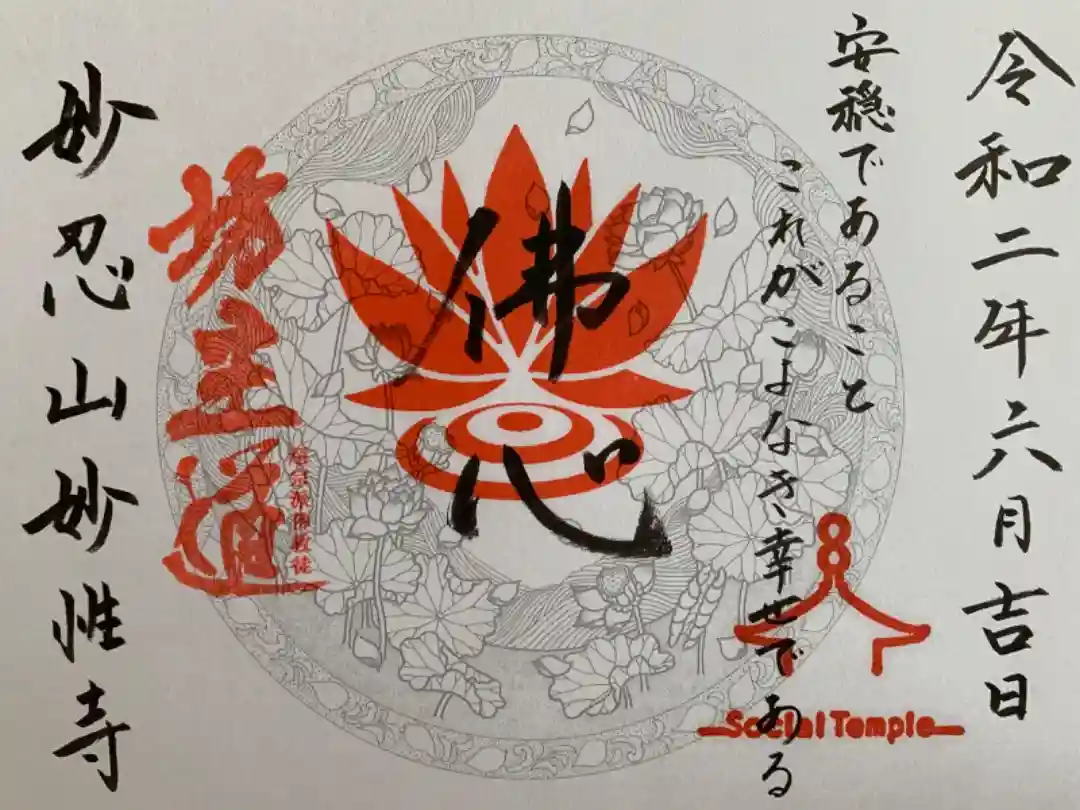 令和二年六月吉日
安穏であること
これがこよなき幸せである
佛心
坊主道
超宗派仏教徒
妙忍山妙性寺
Social Temple